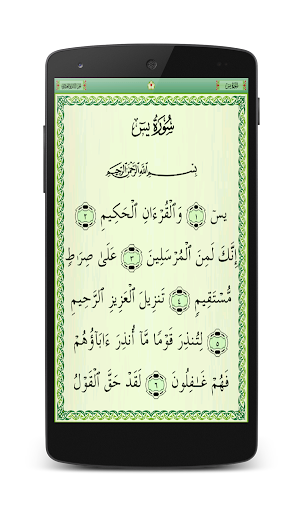 سُورَةُ يسٓ
بِسْمِ اللَّهِ الرَّحْمَٰنِ الرَّحِيمِ
يسٓ ١ وَٱلْقُرْءَانِ ٱلْحَكِيمِ ٢
إِنَّكَ لَمِنَ ٱلْمُرْسَلِينَ ٣ عَلَىٰ صِرَٰطٍ
مُّسْتَقِيمٍ ٤ تَنزِيلَ ٱلْعَزِيزِ ٱلرَّحِيمِ
٥ لِتُنذِرَ قَوْمًا مَّآ أُنذِرَ ءَابَآؤُهُمْ
فَهُمْ غَٰفِلُونَ ٦ لَقَدْ حَقَّ ٱلْقَوْلُ